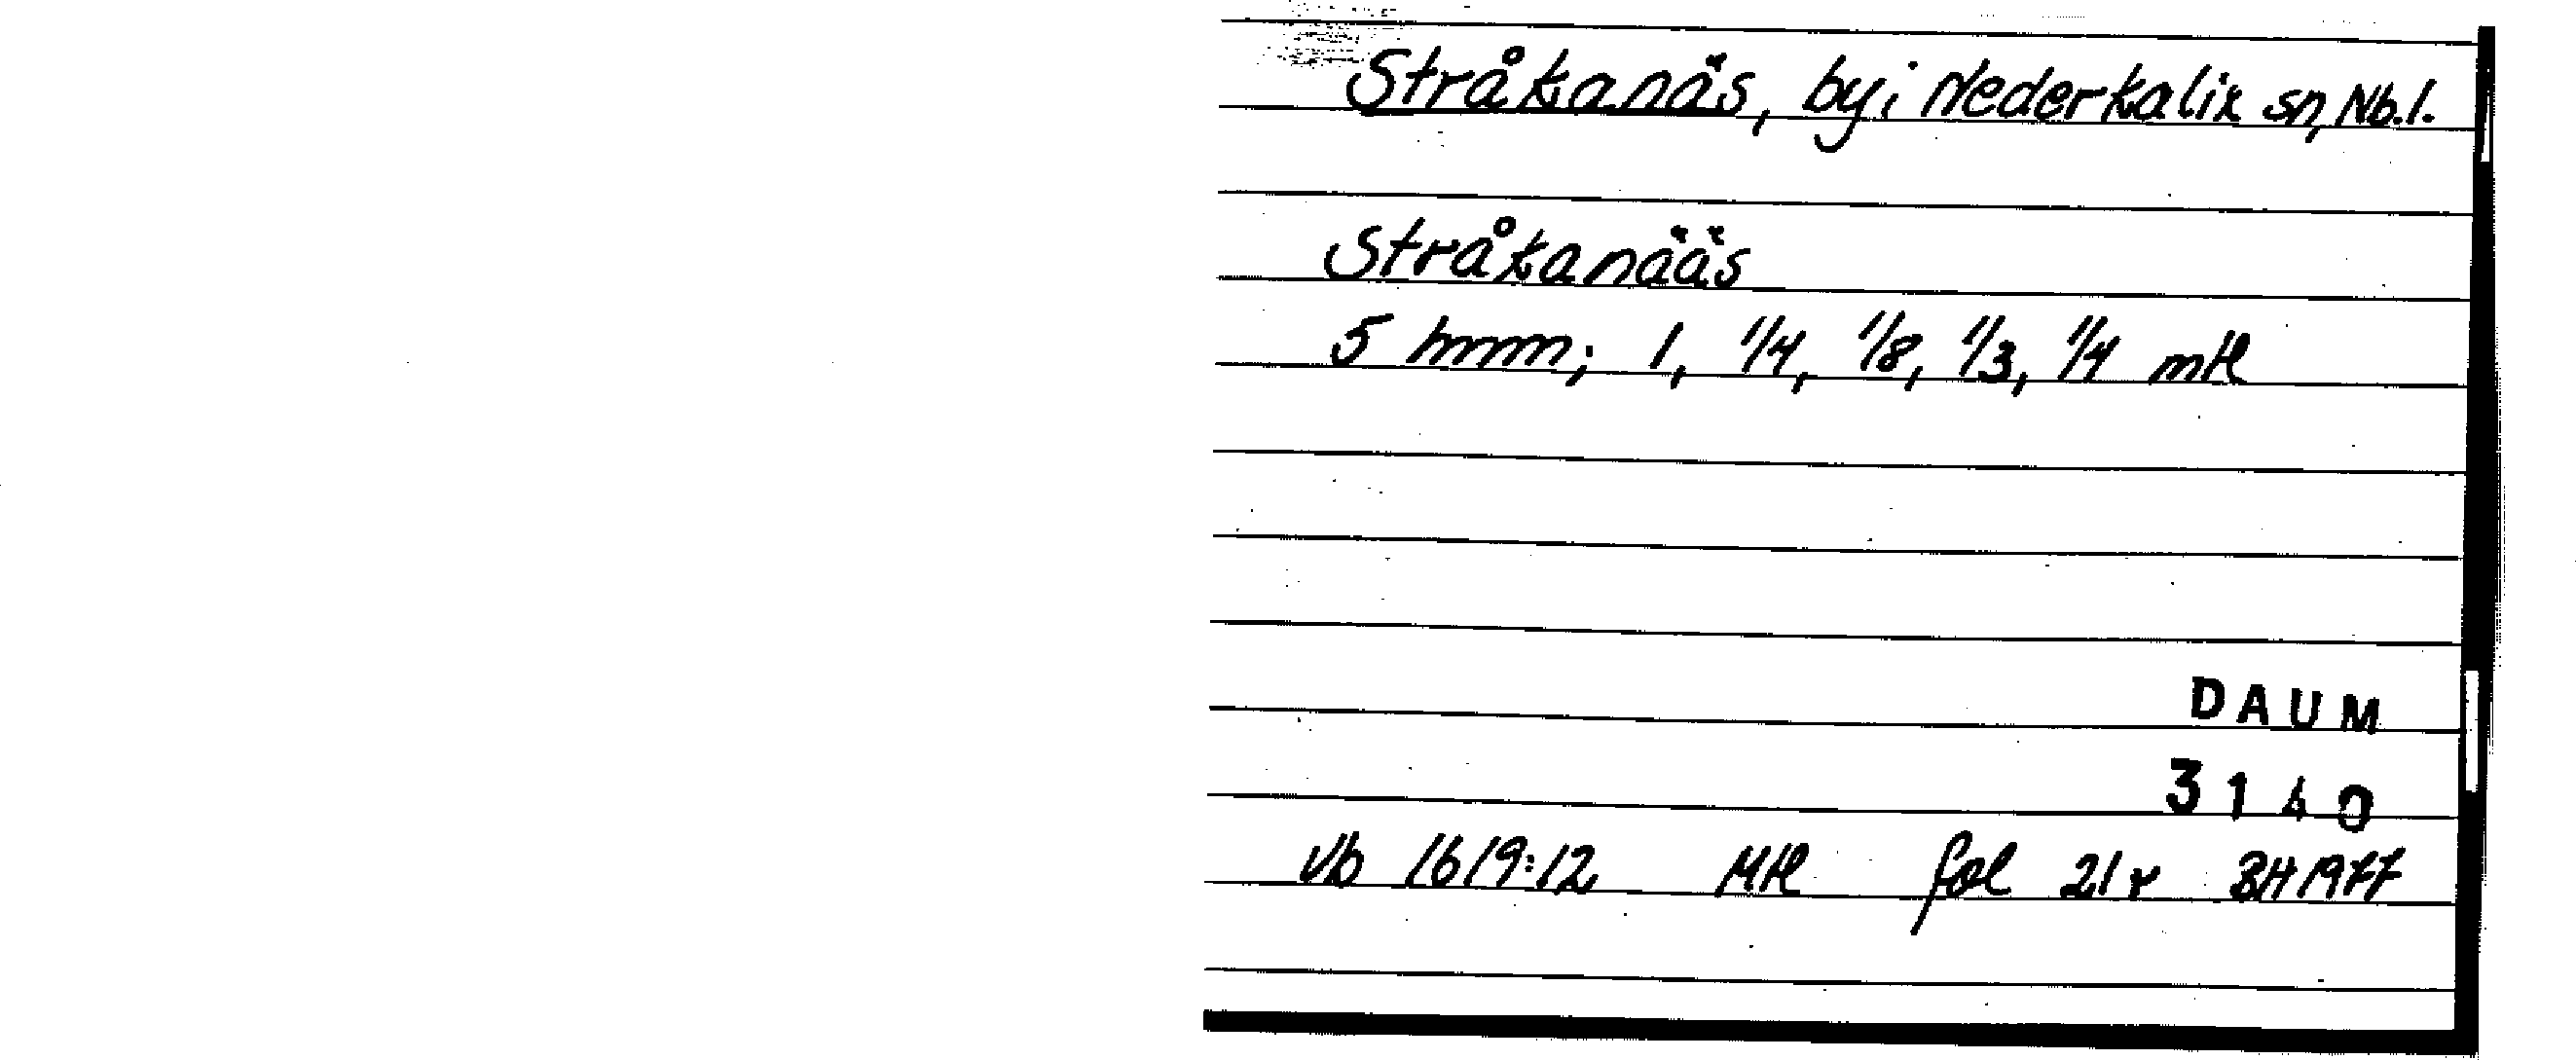 Stråkanäs, by i Nederkalix sn, Nb.l.
Stråkanääs
5 hmm; 1, 1/4, 1/8, 1/3, 1/4 mtl
DAUM
3140
Vb 1619:12 Mtl fol 21 r BH 1977